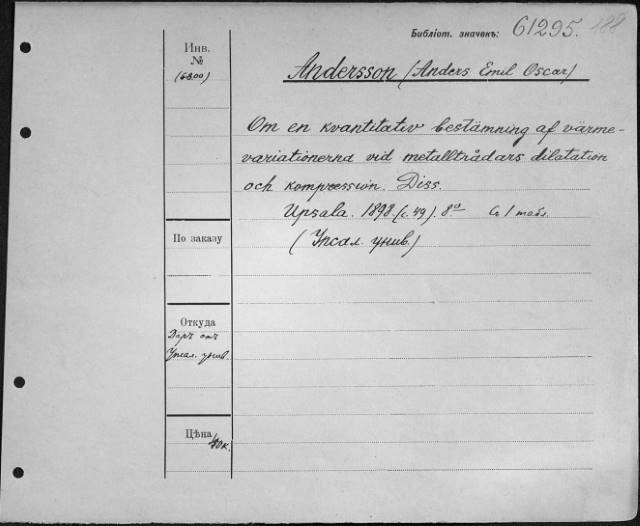 Библіот. значекъ: 61295. 188
Инв.
№
(6800)
Andersson (Anders Emil Oscar)
Om en kvantitativ bestämning af värme-
variationerna vid metalltrådars dilatation
och kompression. Diss.
Upsala. 1898. (с. 49). 8º Съ 1 табл.
(Упсал. унив.)
По заказу
Откуда
Даръ отъ
Упсал. унив.
Цѣна
40 к.